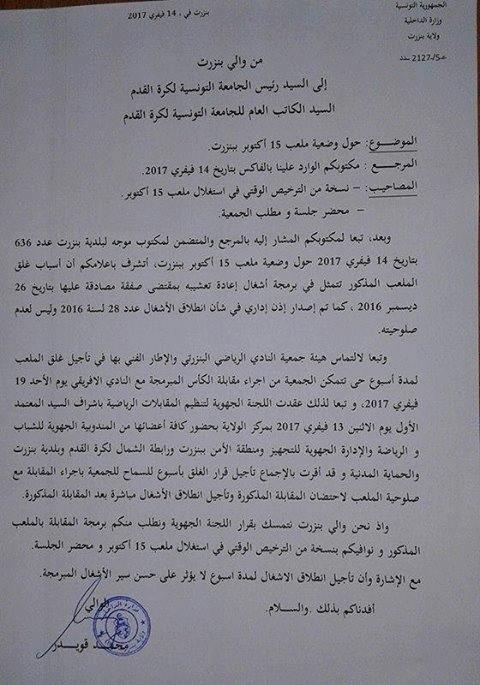 الجمهورية التونسية
وزارة الداخلية
ولاية بنزرت
بنزرت في ، 14 فيفري 2017
عـ5/-2127 ـدد
من والي بنزرت
إلى السيد رئيس الجامعة التونسية لكرة القدم
السيد الكاتب العام للجامعة التونسية لكرة القدم
الموضــــوع: حول وضعية ملعب 15 أكتوبر ببنزرت.
المرجــــع : مكتوبكم الوارد علينا بالفاكس بتاريخ 14 فيفري 2017.
المصاحيب: – نسخة من الترخيص الوقتي في استغلال ملعب 15 أكتوبر.
– محضر جلسة و مطلب الجمعية.
وبعد، تبعا لمكتوبكم المشار إليه بالمرجع والمتضمن لمكتوب موجه لبلدية بنزرت عدد 636
بتاريخ 14 فيفري 2017 حول وضعية ملعب 15 أكتوبر ببنزرت، أتشرف باعلامكم أن أسباب غلق
الملعب المذكور تتمثل في برمجة أشغال إعادة تعشيبه بمقتضى صفقة مصادقة عليها بتاريخ 26
ديسمبر 2016 ، كما تم إصدار إذن إداري في شأن انطلاق الأشغال عدد 28 لسنة 2016 وليس لعدم
صلوحيته.
وتبعا لالتماس هيئة جمعية النادي الرياضي البنزرتي والإطار الفني بها في تأجيل غلق الملعب
لمدة أسبوع حتى تتمكن الجمعية من اجراء مقابلة الكأس المبرمجة مع النادي الافريقي يوم الأحد 19
فيفري 2017، و تبعا لذلك عقدت اللجنة الجهوية لتنظيم المقابلات الرياضية باشراف السيد المعتمد
الأول يوم الاثنين 13 فيفري 2017 بمركز الولاية بحضور كافة أعضائها من المندوبية الجهوية للشباب
و الرياضة والإدارة الجهوية للتجهيز ومنطقة الأمن ببنزرت ورابطة الشمال لكرة القدم وبلدية بنزرت
والحماية المدنية و قد أقرت بالإجماع تأجيل قرار الغلق بأسبوع للسماح للجمعية باجراء المقابلة مع
صلوحية الملعب لاحتضان المقابلة المذكورة وتأجيل انطلاق الأشغال مباشرة بعد المقابلة المذكورة.
واذ نحن والي بنزرت نتمسك بقرار اللجنة الجهوية ونطلب منكم برمجة المقابلة بالملعب
المذكور و نوافيكم بنسخة من الترخيص الوقتي في استغلال ملعب 15 أكتوبر و محضر الجلسة.
مع الإشارة وأن تأجيل انطلاق الاشغال لمدة اسبوع لا يؤثر على حسن سير الأشغال المبرمجة.
أفدناكم بذلك .والســلام.
الوالي
محمد قويدر